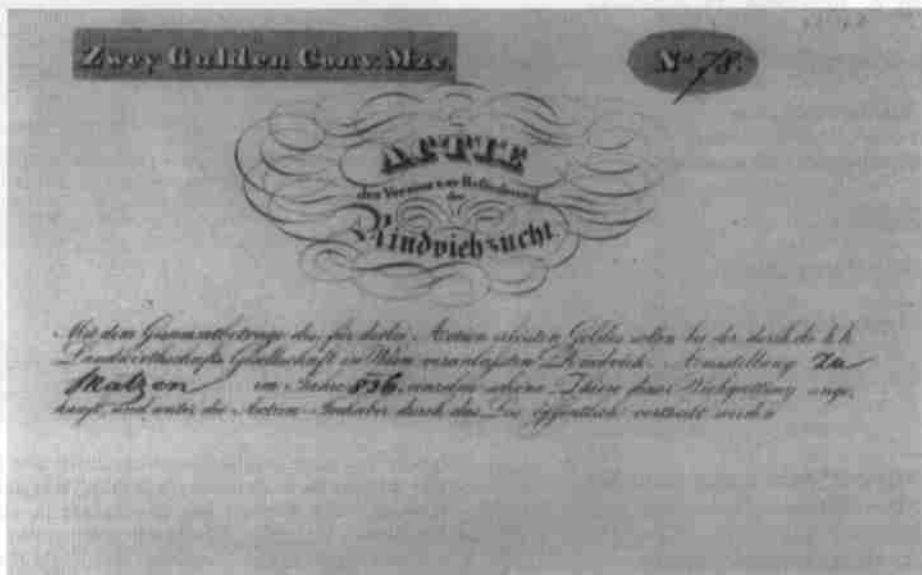 Zwey Gulden Conv. Mze.
No 78.
ACTIE
des Vereins zur Beförderung
der
Rindviehzucht
Mit dem Gesammtbetrage des für derlei Actien erlösten Geldes sollen bei der durch die k. k.
Landwirthschafts Gesellschaft in Wien veranlassten Rindvieh-Ausstellung zu
Matzen im Jahre 836. werden schöne Thiere dieser Viehgattung ange-
kauft, und unter die Actien-Inhaber durch das Los öffentlich vertheilt werden